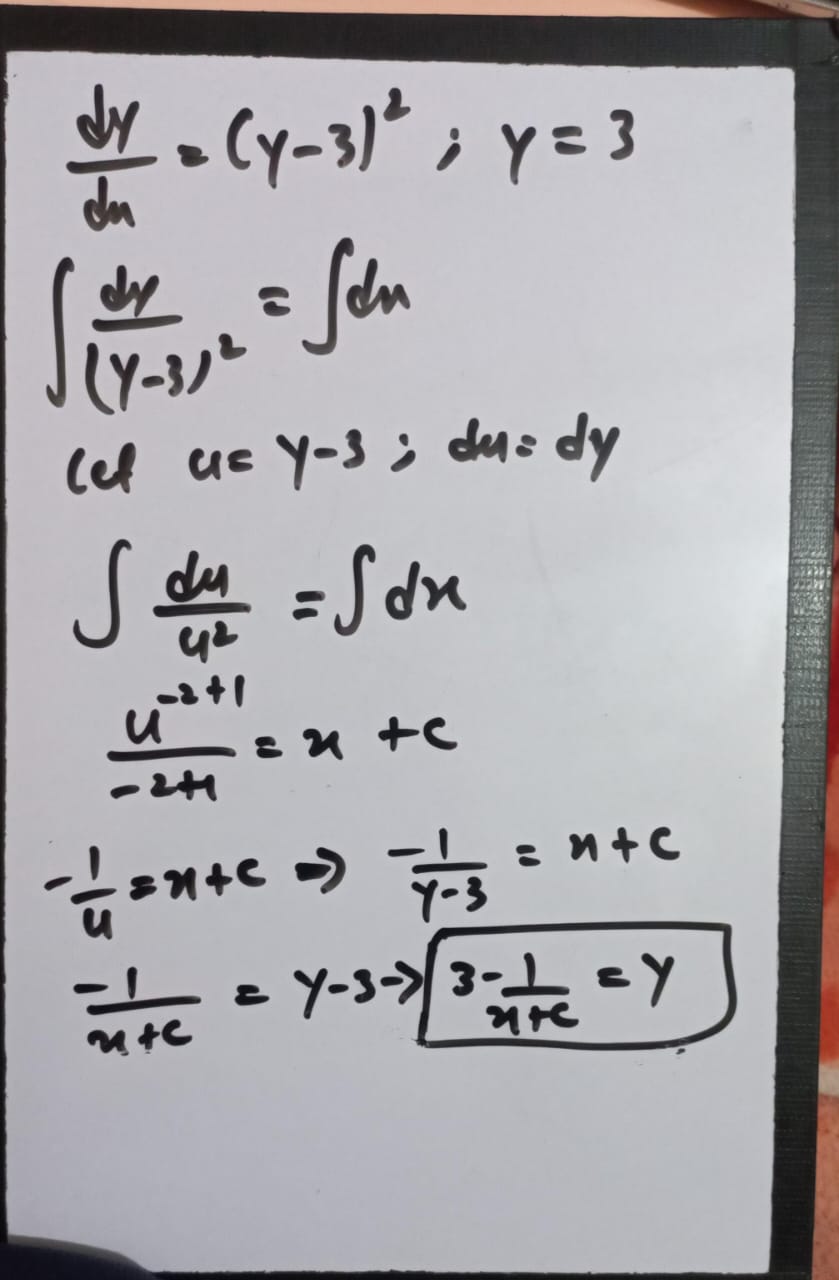 dy/dx = (y-3)² ; y = 3
∫ dy/(y-3)² = ∫dx
let u = y-3 ; du = dy
∫ du/u² = ∫dx
u^(-2+1)/(-2+1) = x + c
-1/u = x+c ⇒ -1/(y-3) = x+c
-1/(x+c) = y-3 → 3 - 1/(x+c) = y